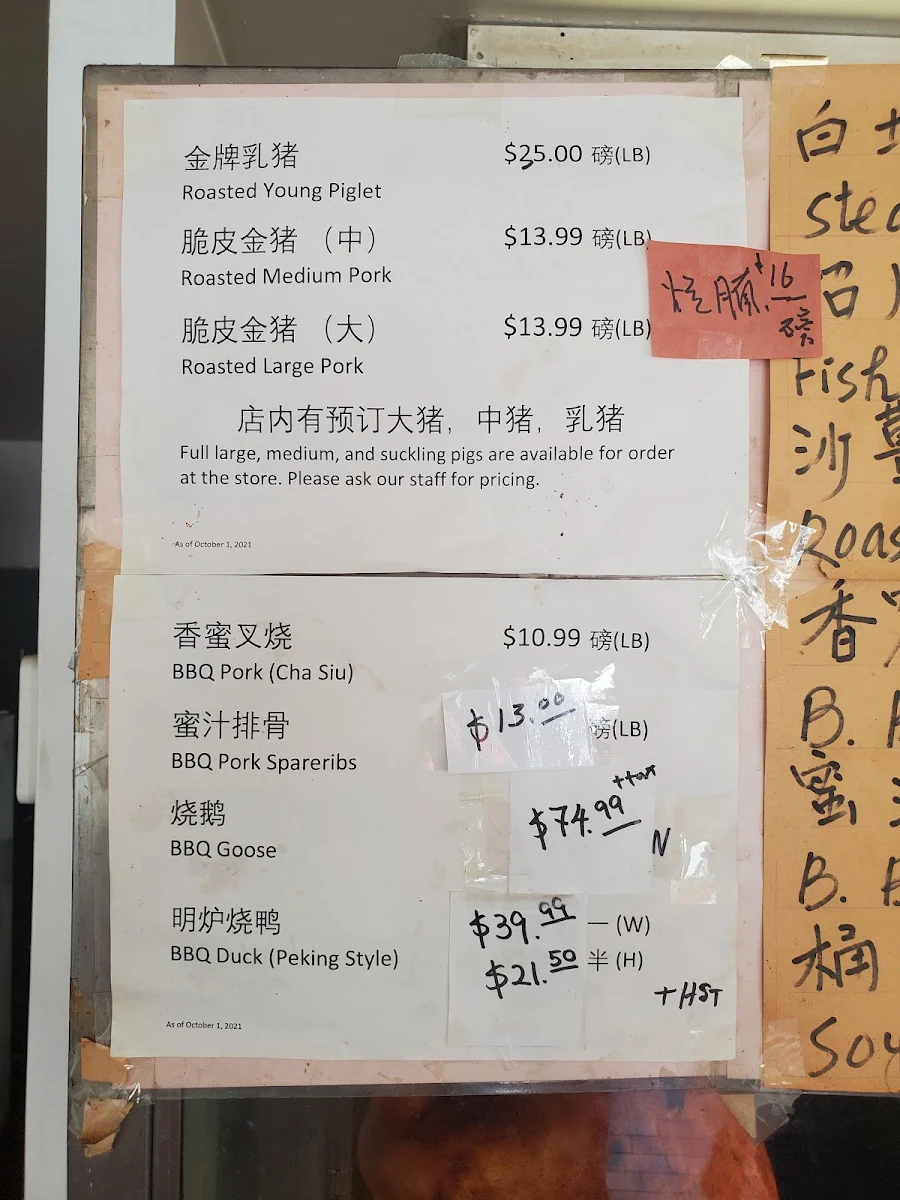 金牌乳猪 $25.00 磅(LB)
Roasted Young Piglet
脆皮金猪 （中） $13.99 磅(LB)
Roasted Medium Pork
脆皮金猪 （大） $13.99 磅(LB)
Roasted Large Pork
店内有预订大猪，中猪，乳猪
Full large, medium, and suckling pigs are available for order
at the store. Please ask our staff for pricing.
As of October 1, 2021
烧腩 16
磅
香蜜叉烧 $10.99 磅(LB)
BBQ Pork (Cha Siu)
蜜汁排骨 $13.00 磅(LB)
BBQ Pork Spareribs
+tax
烧鹅 $74.99
BBQ Goose N
明炉烧鸭 $39.99 一 (W)
BBQ Duck (Peking Style) $21.50 半 (H)
+HST
As of October 1, 2021
白
Stea
Fish
沙
Roas
香
B.
蜜
B.
桶
Soy